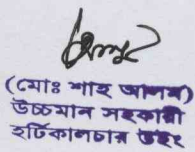 (মোঃ শাহ আলম)
উচ্চমান সহকারী
হর্টিকালচার উইং